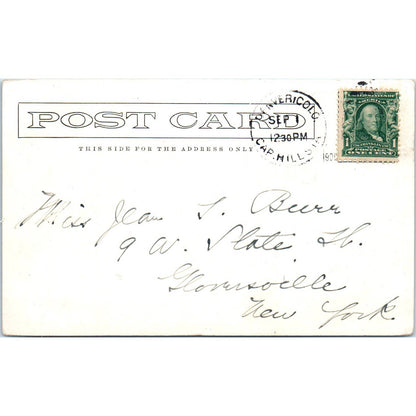 POST CARD
THIS SIDE FOR THE ADDRESS ONLY
DENVER, COLO.
SEP 1
12 30 PM
CAP. HILL S
190
1 1
ONE CENT
Miss Jean S. Burr
9 W. State St.
Gloversville
New York.